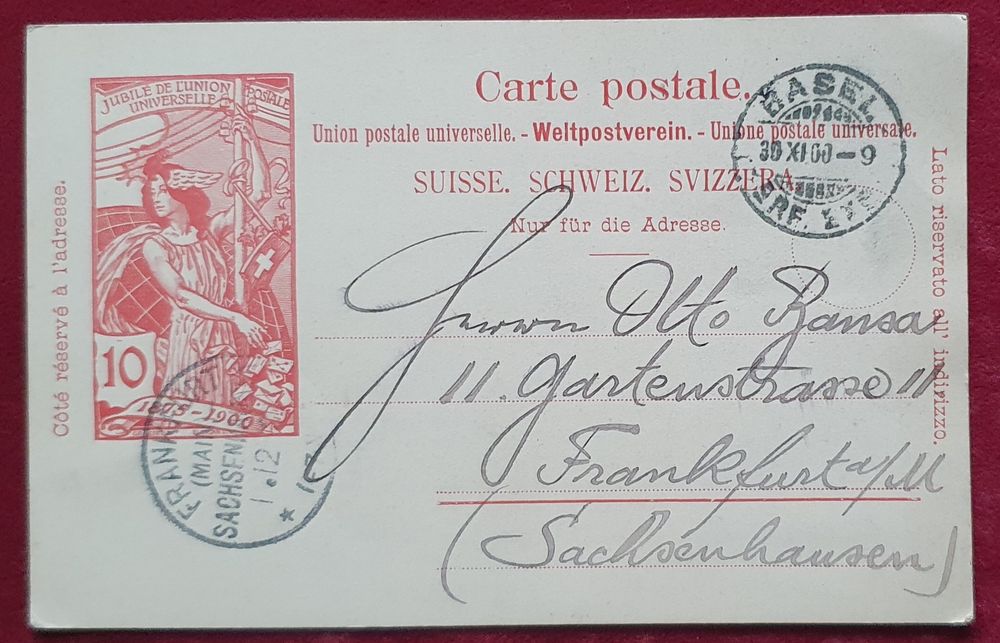 Carte postale.
Union postale universelle. - Weltpostverein. - Unione postale universale.
SUISSE. SCHWEIZ. SVIZZERA.
Nur für die Adresse.
Côté réservé à l'adresse.
JUBILÉ DE L'UNION POSTALE
UNIVERSELLE
10
1875-1900
BASEL
30 XI 00-9
BRF. EX
Lato riservato all' indirizzo.
Herrn Otto Bansa
11. Gartenstrasse 11
Frankfurt a/M
(Sachsenhausen)
FRANKFURT
(MAIN)
SACHSENH
1.12